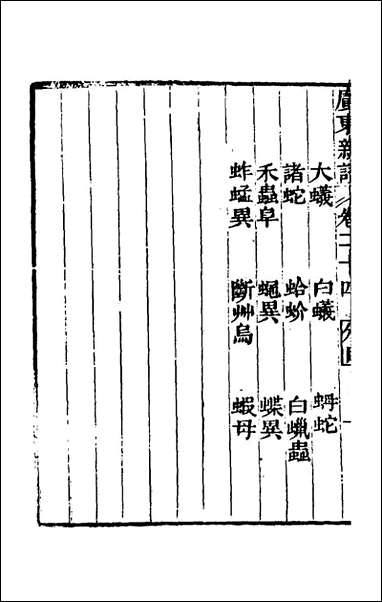 廣東新語 卷二十四 分目 一
大蟻 白蟻 蚺蛇
諸蛇 蛤蚧 白蠟蟲
禾蟲阜 蠅異 蝶異
蚱蜢異 斷艸烏 蝦母